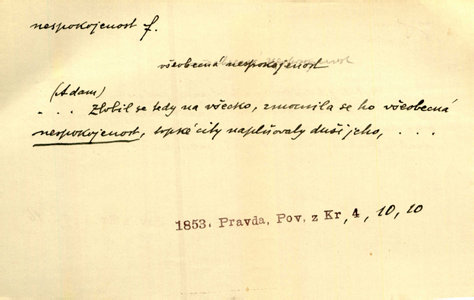 nespokojenost f.
všeobecná nespokojenost
(Adam)
. . . Zlobil se tedy na všecko, zmocnila se ho všeobecná
nespokojenost, trpké city naplňovaly duši jeho, . . .
1853. Pravda, Pov. z Kr, 4, 10, 10